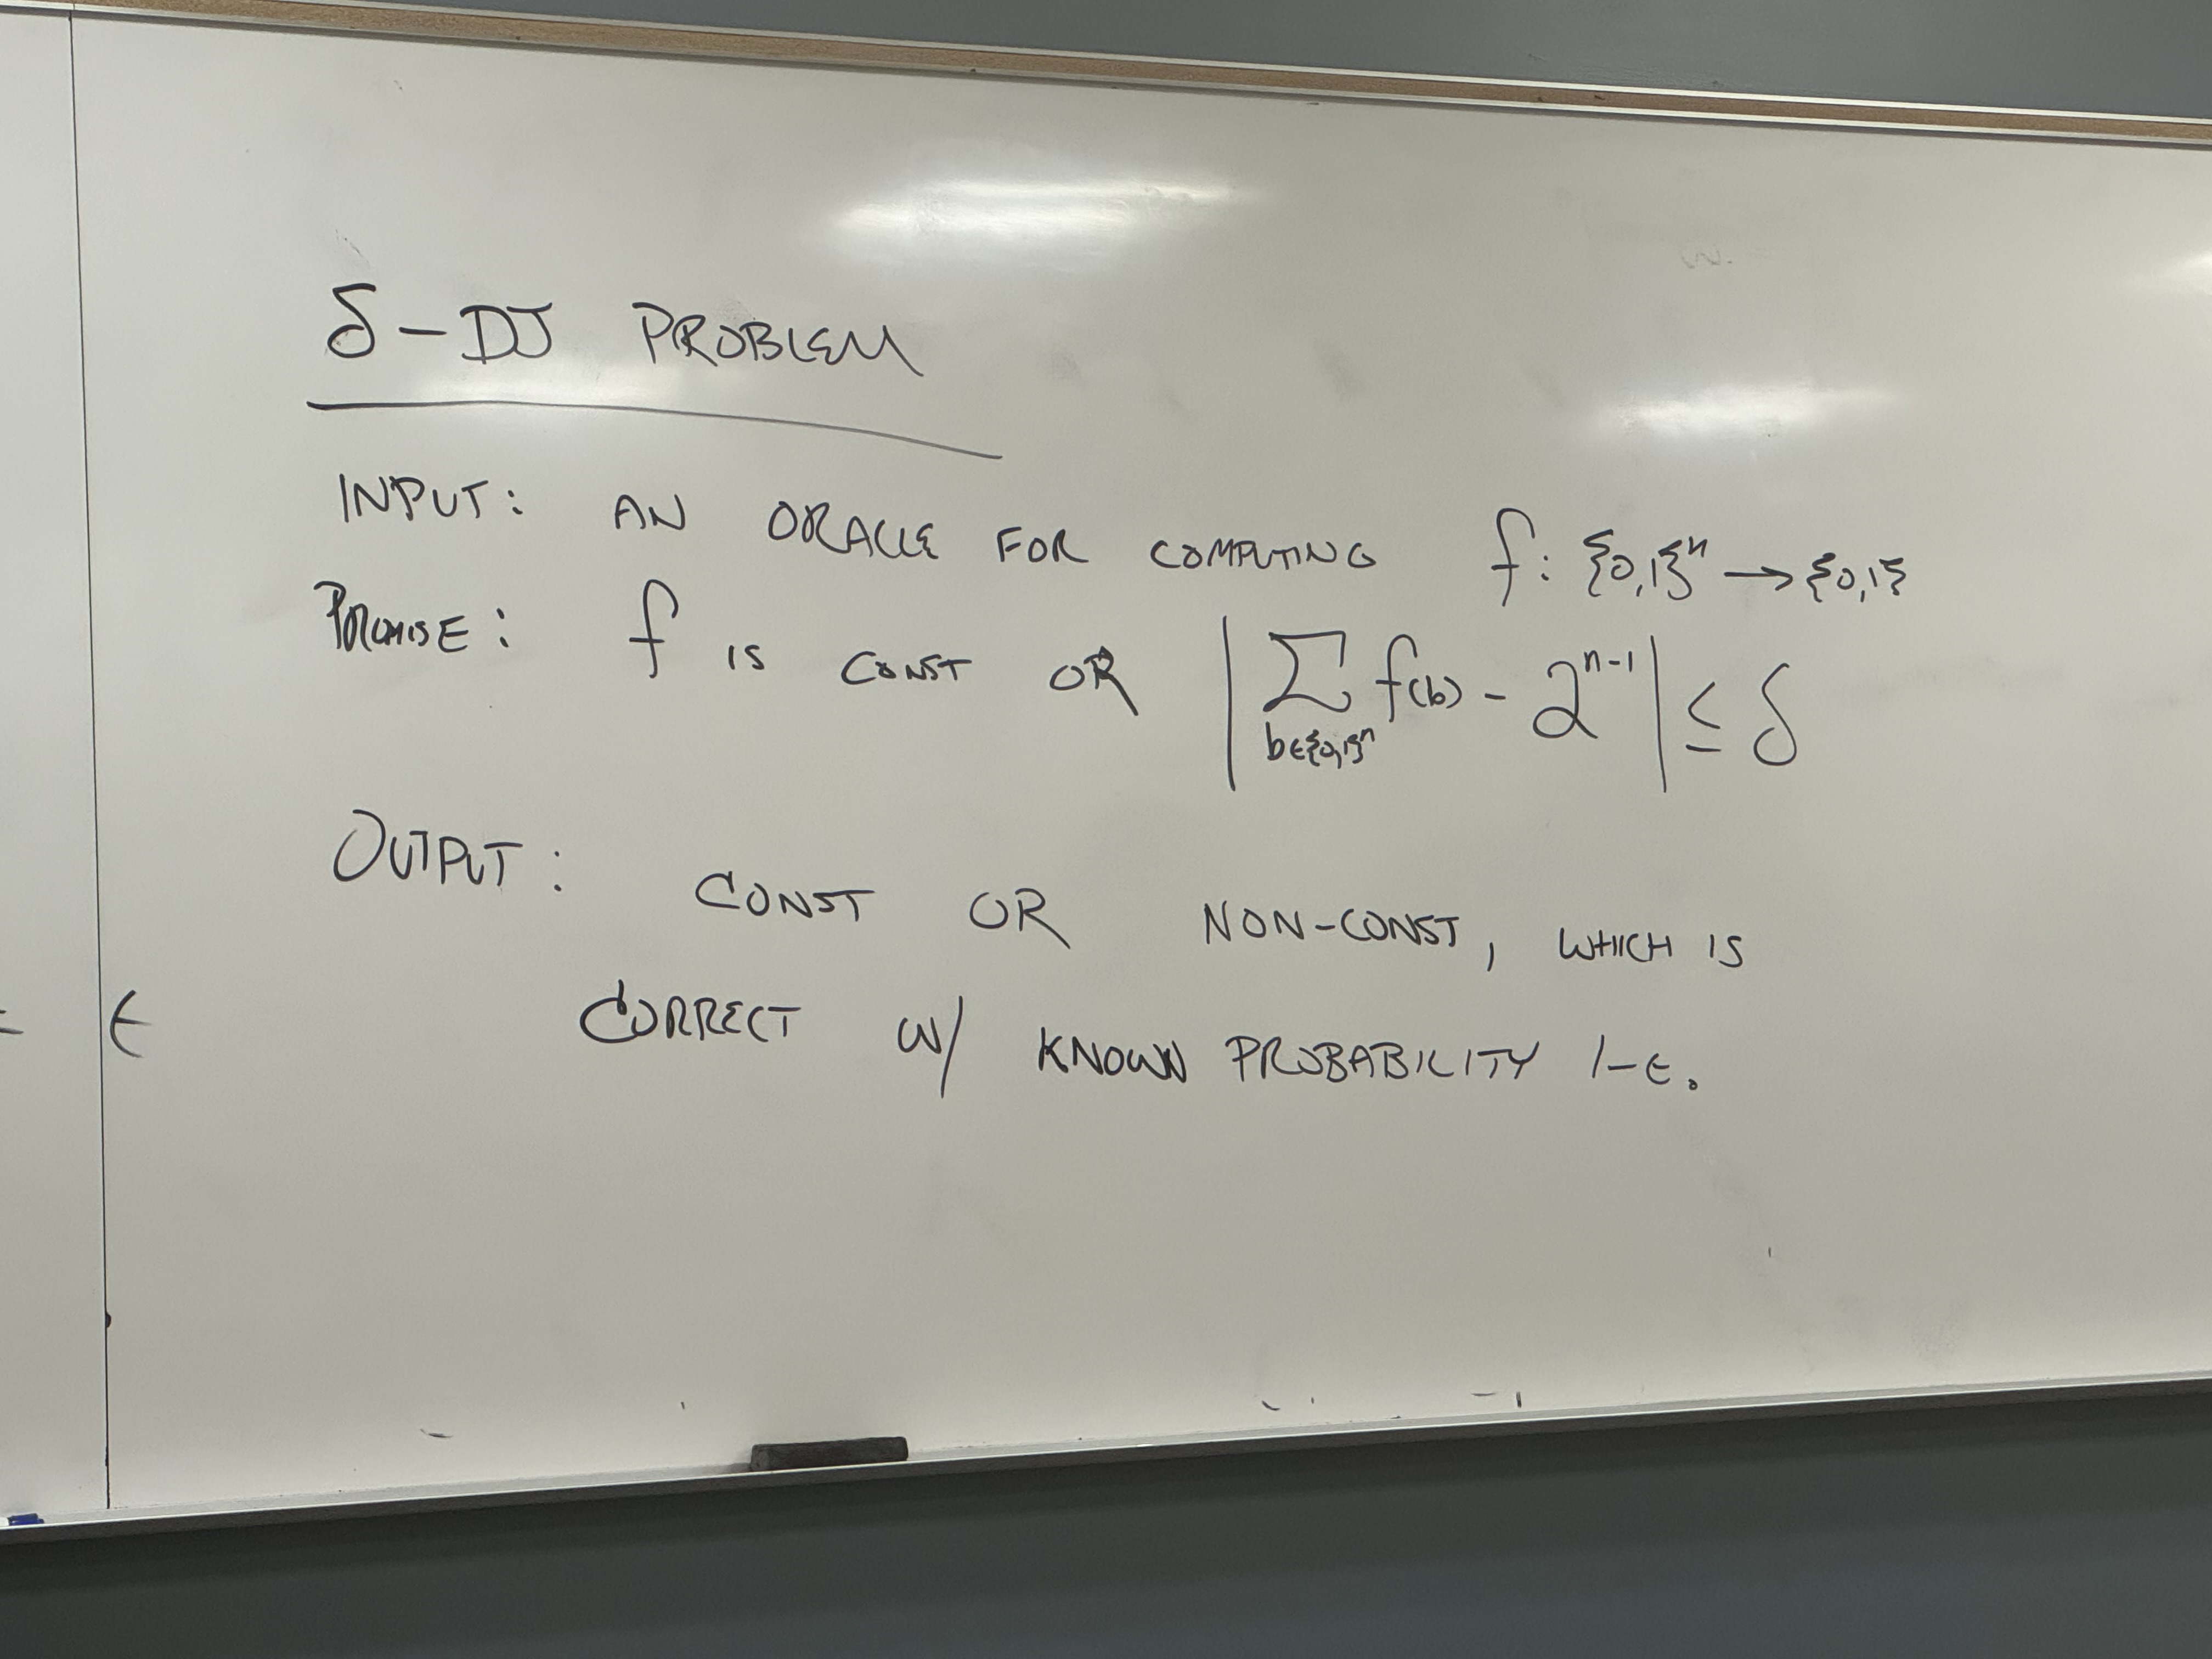 δ-DJ PROBLEM
INPUT: AN ORACLE FOR COMPUTING f: {0,1}ⁿ → {0,1}
PROMISE: f IS CONST OR | Σ_{b∈{0,1}ⁿ} f(b) - 2ⁿ⁻¹ | ≤ δ
OUTPUT: CONST OR NON-CONST, WHICH IS
CORRECT W/ KNOWN PROBABILITY 1-ϵ.
ϵ